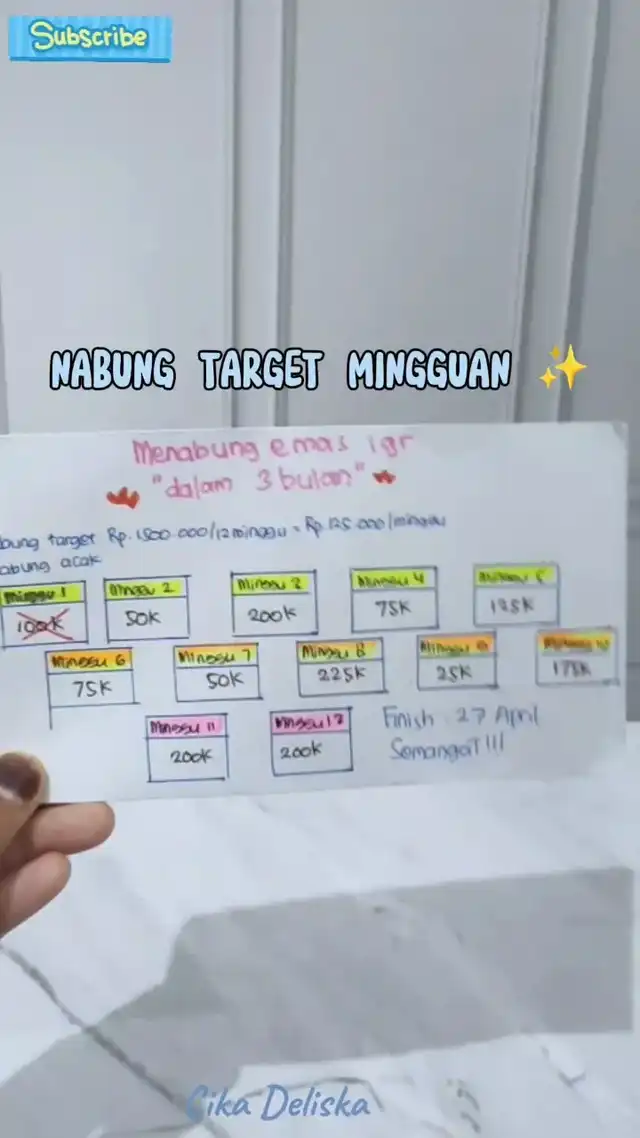 Subscribe
NABUNG TARGET MINGGUAN
Menabung emas 1gr
"dalam 3 bulan"
bung target Rp. 1.500.000/12 minggu = Rp. 125.000/minggu
abung acak
Minggu 1 Minggu 2 Minggu 3 Minggu 4 Minggu 5
100K 50K 200K 75K 125K
Minggu 6 Minggu 7 Minggu 8 Minggu 9 Minggu 10
75K 50K 225K 25K 175K
Minggu 11 Minggu 12 Finish : 27 April
200K 200K Semangat!!!
Cika Deliska